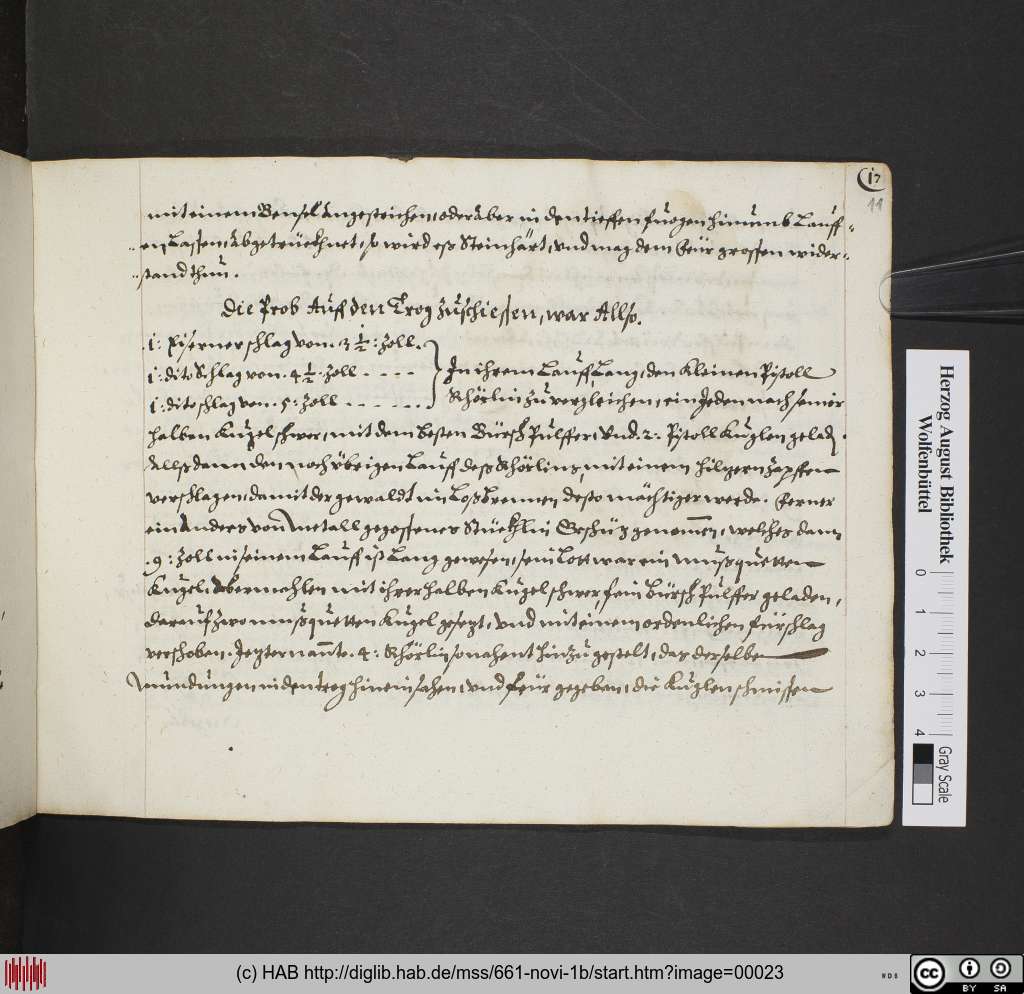 17
11
mit einem Bensel angestrichen, oder aber in den tieffen fuogen hinumb Lauff-
en Lassen, abgetrücknet, so wird eß Steinhart, und mag dem Feür grossen wider-
stand thun.
Die Prob Auff den Trog zuschiessen, war Allso.
1: Eiserner schlag von 3 1/2: Zoll.
1: dito Schlag von 4 1/2 Zoll - - - -
1: dito schlag von 5: Zoll - - - - -
In ihrem Lauff Lang, den kleinen Pistoll
Rhörlin zu vergleichen, ein Jeden nach seiner
halben Kugel schwer, mit dem besten Bürsch Pulffer, und 2: Pistoll kuglen geladen.
Allß dann den noch übrigen Lauff deß Rhörlins, mit einem hiltzern zapffen
verschlagen, damit der gewaldt im Loß brennen desto mächtiger werde. Ferner
ein Anders von Metall gegossenes Stückhlin Geschütz genomen, welches dann
9: Zoll in seinem Lauff ist Lang gewesen, sein Lott war ein mußquetten
Kugel, Abermahlen mit ihrer halben Kugel schwer, fein Bürsch Pulffer geladen,
darauf zwo mußquetten Kugel gesetzt, und mit einem ordenlichen fürschlag
verschoben. Jetzternante 4: Rhörlin so nahent hinzu gestelt, das derselben
Mundungen in den trog hinein sahen, und feür gegeben, die Kuglen schmissen
Herzog August Bibliothek
Wolfenbüttel
0 1 2 3 4
Gray Scale
(c) HAB http://diglib.hab.de/mss/661-novi-1b/start.htm?image=00023
cc BY SA